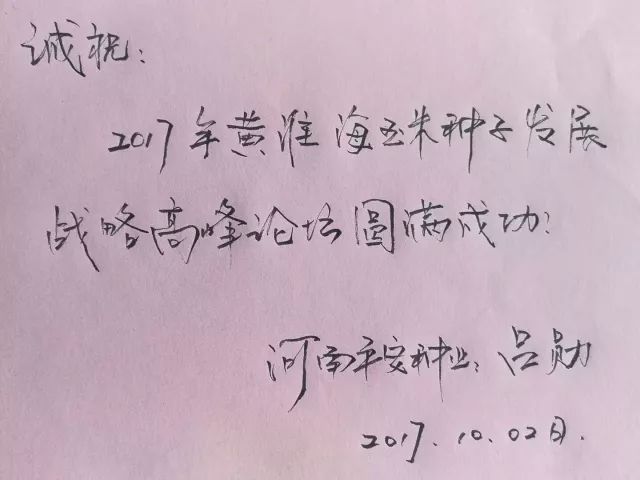 诚祝：
2017年黄淮海玉米种子发展
战略高峰论坛圆满成功！
河南平安种业：吕勋
2017.10.02日.